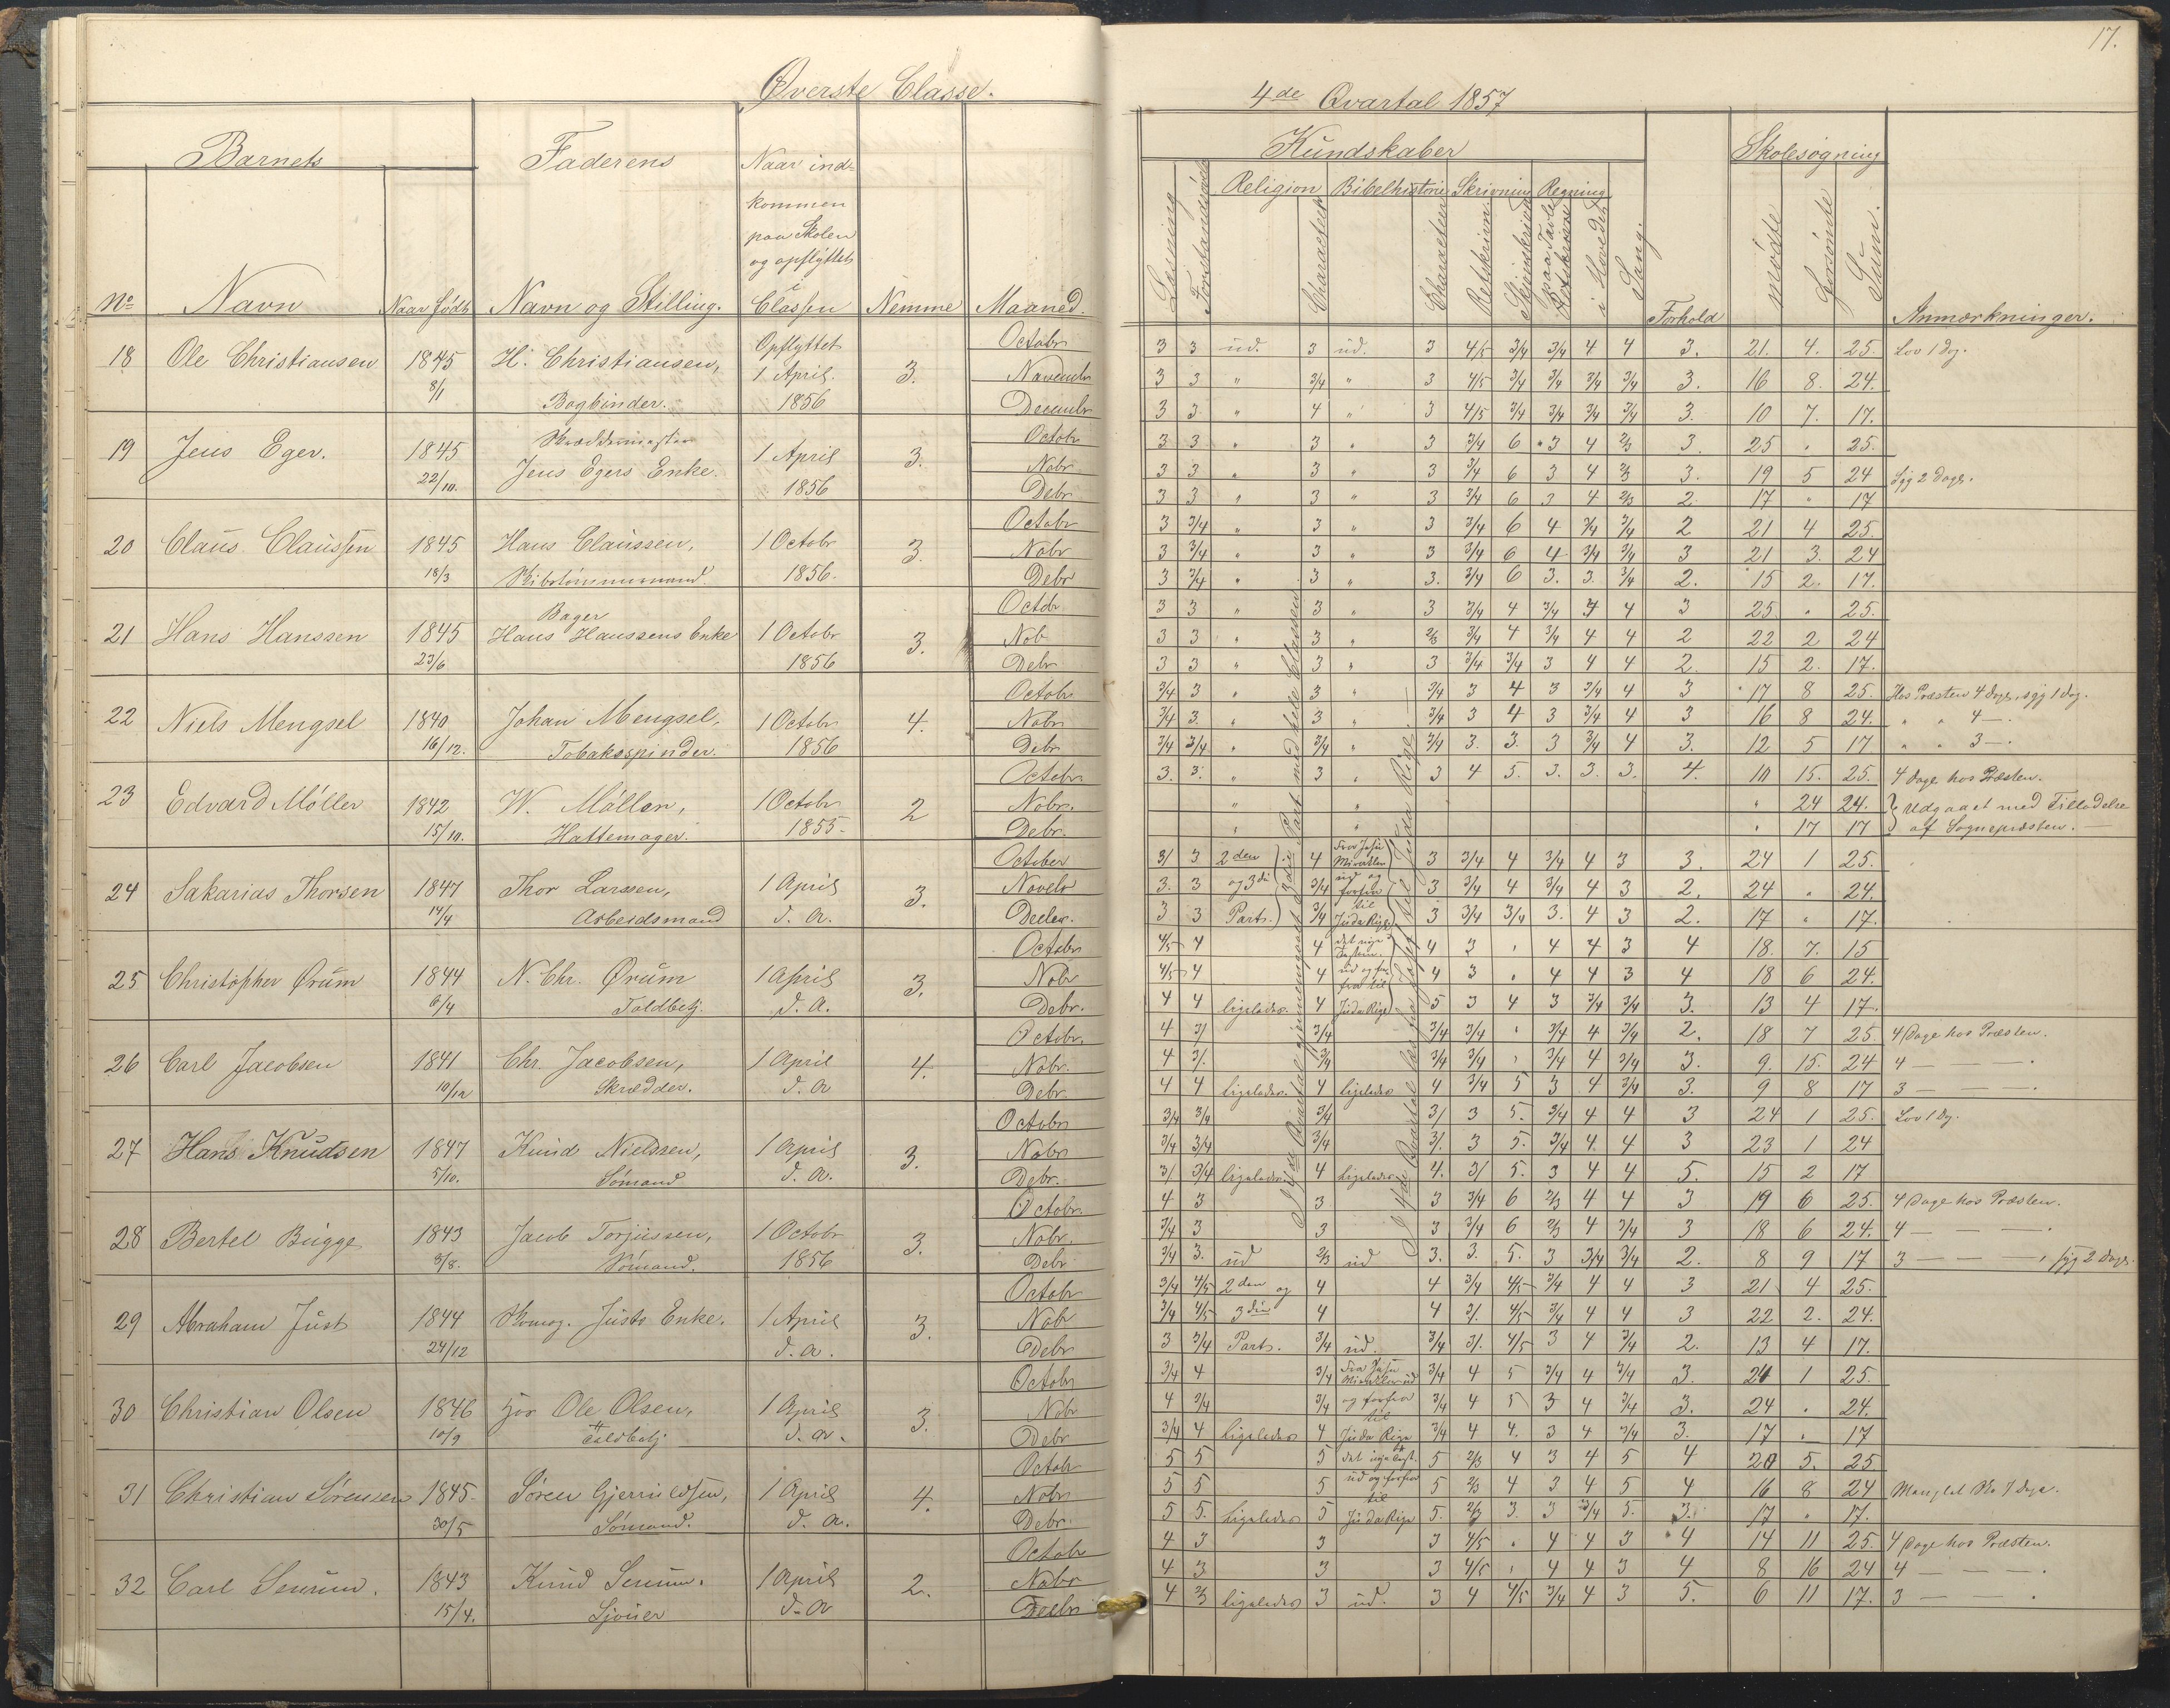 17.
Øverste Classe.
4de Qvartal 1857
Barnets Faderens Naar ind=
kommen
paa Skolen
og opflyttet
i
No Navn Naar født Navn og Stilling. Classen Nemme Maaned.
Kundskaber Skolesøgning
Religion Bibelhistorie Skrivning Regning
Læsning Forstandsøvelse Characteer Characteer Retskrivn. Skjønskrivn. paa Tavle i Hovedet Sang. Forhold mødte forsømte Sum. Anmærkninger.
18 Ole Christiansen 1845 H. Christiansen, Opflyttet 3. Octobr
8/1 Bogbinder. 1 April. 1856 Novembr
Decembr
3 3 ud. 3 ud. 3 4/5 3/4 3/4 4 4 3. 21. 4. 25. Lov 1 Dag.
3 3 " 3/4 " 3 4/5 3/4 3/4 3/4 3/4 3. 16 8. 24.
3 3 " 4 " 3 4/5 3/4 3/4 3/4 3/4 3. 10 7. 17.
19 Jens Eger. 1845 1 April 3. Octobr
22/10. Jens Egers Enke. 1856 Nobr
Debr
3 3 " 3 " 3 3/4 6 3 4 2/3 3. 25 " 25.
3 3 " 3 " 3 3/4 6 3 4 2/3 3. 19 5 24 Syg 2 Dage.
3 3 " 3 " 3 3/4 6 3 4 2/3 2. 17 " 17
20 Claus Claussen 1845 Hans Claussen, 1 Octobr 3. Octobr
18/3 Skibstømmermand. 1856. Nobr
Debr
3 3/4 " 3 " 3 3/4 6 4 3/4 3/4 2 21 4 25.
3 3/4 " 3 " 3 3/4 6 4 3/4 3/4 3 21 3. 24
3 3/4 " 3 " 3. 3/4 6 3. 3. 3/4 2. 15 2. 17.
21 Hans Hanssen 1845 Bager
Hans Hanssens Enke 1 Octobr 3. Octobr
23/6 1856 Nob
Debr
3 3 " 3 " 3 3/4 4 3/4 4 4 3 25. " 25.
3 3 " 3 " 2/3 3/4 4 3/4 4 4 2 22 2 24
3 3 " 3 " 3 3/4 3/4 3 4 4 2. 15 2. 17.
22 Niels Mengsel 1840 Johan Mengsel, 1 Octobr 4. Octobr
16/12. Tobaksspinder. 1856 Nobr
Debr
3/4 3 " 3 " 3/4 3 4 3 3/4 4 3 17 8 25. Hos Præsten 4 Dage, syg 1 Dag.
3/4 3. " 3 " 3/4 3 4 3 3/4 4 3 16 8 24. " " 4 —.
3/4 3/4 " 3/4 " 3/4 3. 3. 3 3/4 4 3. 12 5 17 " " 3 —.
23 Edvard Møller 1842 W. Møller, 1 Octobr 2 Octobr
15/10. Hattemager. 1855. Nobr.
Debr.
3. 3. " 3 " 3 4 5. 3. 3. 3. 4. 10 15. 25. 4 Dage hos Præsten.
" " " 24 24. } Udgaaet med Tilladelse
" " " 17 17 af Sognepræsten. —
24 Sakarias Thorsen 1847 Thor Larssen, 1 April 3. October
14/4 Arbeidsmand d. A. Novebr
Decbr.
3/ 3 2den 4 Fra Jesu Mirakler 3 3/4 4 3/4 4 3 3. 24 1 25.
3. 3 og 3di 3/4 ud og forfra 3 3/4 4 3/4 4 3 2. 24 " 24.
3 3 Part. 3/4 til Juda Rige 3 3/4 3/4 3. 4 3 2. 17 " 17.
25 Christopher Ørum 1844 N. Chr. Ørum 1 April 3. Octobr
6/4 Toldbetj. d. A. Nobr
Debr.
4/5 4 4 det nye Testam. 4 3 " 4 4 3 4 18. 7. 15
4/5 4 4 ud og for= fra til 4 3 " 4 4 3 4 18 6 24.
4 4 ligeledes. 4 Juda Rige 5 3 4 3 3/4 3/4 3. 13 4 17.
26 Carl Jacobsen 1841 Chr. Jacobsen, 1 April 4. Octobr.
10/12 Skrædder. d. A Nobr.
Debr.
4 3/ 3/4 3/4 3/4 " 3/4 4 3/4 2. 18 7 25 4 Dage hos Præsten.
4 3/. 3/4 3/4 3/4 " 3/4 4 3/4 3. 9. 15. 24 4 — — —.
4 4 ligeledes. 4 ligeledes 4 3/4 5 3 4 3/4 3. 9 8 17 3 — — —.
27 Hans Knudsen 1847 Knud Nielsen, 1 April 3. Octobr
5/10. Sømand d. A. Nobr
Debr.
3/4 3/4 3/4 3/ 3 5. 3/4 4 4 3 24 1 25. Lov 1 Dg.
3/4 3/4 3/4 3/. 3 5. 3/4 4. 4 3 23 1 24
3/ 3/4 ligeledes. 4 ligeledes. 4. 3/ 5. 3 4 4 5. 15 2 17
28 Bertel Bugge 1843 Jacob Torjussen, 1 Octobr 3. Octobr.
8/8. Sømand. 1856 Nobr.
Debr
4 3 3 3 3/4 6 2/3 4 4 3 19 6 25. 4 Dage hos Præsten.
3/4 3 3 3 3/4 6 2/3 4 3/4 3 18 6 24. 4 — — —.
3/4 3. ud 2/3 ud 3. 3. 5. 3 3/4 3/4 2. 8 9 17 3 — — —, syg 2 Dage.
29 Abraham Just 1844 Skomag. Justs Enke. 1 April 3. Octobr
24/12 d. A. Nobr
Debr
3/4 4/5 2den og 4 4 3/4 4/5 3/4 4 4 3 21 4 25.
3/4 4/5 3die 4 4 3/. 4/5 3/4 4 4 3 22 2. 24.
3 3/4 Part. 3/4 ud. 3/4 3/. 4/5 3 4 3/4 2. 13 4 17.
30 Christian Olsen 1846 Ole Olsen, 1 April 3. Octobr
10/9 Toldbetj d. A. Nobr
Debr
3/4 4 3/4 Fra Jesu Mirakler ud 3/4 4 5 3/4 4 3/4 3. 24 1 25.
4 3/4 3/4 og forfra til 3/4 4 5 3 4 3/4 3. 24 " 24.
3/4 4 ligeledes 4 Juda Rige 3/4 4 4. 3 4 3/4 3. 17 " 17
31 Christian Sørensen 1845. Søren 1 April 4. Octobr
30/5 Sømand. d. A. Nobr
Debr.
5 5 5 det nye Test. 5 2/3 4 3 4 5 4 20 5. 25
5 5 5 ud og forfra til 5 2/3 4 3 4 5 4 16 8 24 Manglet Sko 7 Dage.
5 5. ligeledes 5 Juda Rige 5. 2/3 3. 3 3/4 5. 3. 17 " 17.
32 Carl Senum. 1843 Knud Senum. 1 April 2. Octobr
15/4. Sjouer d. A Nobr
Decbr
4 3 3 3 4/5 " 4 4 3 4 14 11 25. 4 Dage hos Præsten.
4 3 3 3 4/5 " 4 4 3 4 8 16 24 4 — — —.
4 2/3 ligeledes 3 ud. 3 4 4/5 3/4 4 3 5. 6 11 17. 3 — — .
I 4de Qvartal gjennemgaaet 3die Part med hele Classen
I 4de Qvartal læst fra Josef til Juda Rige. —